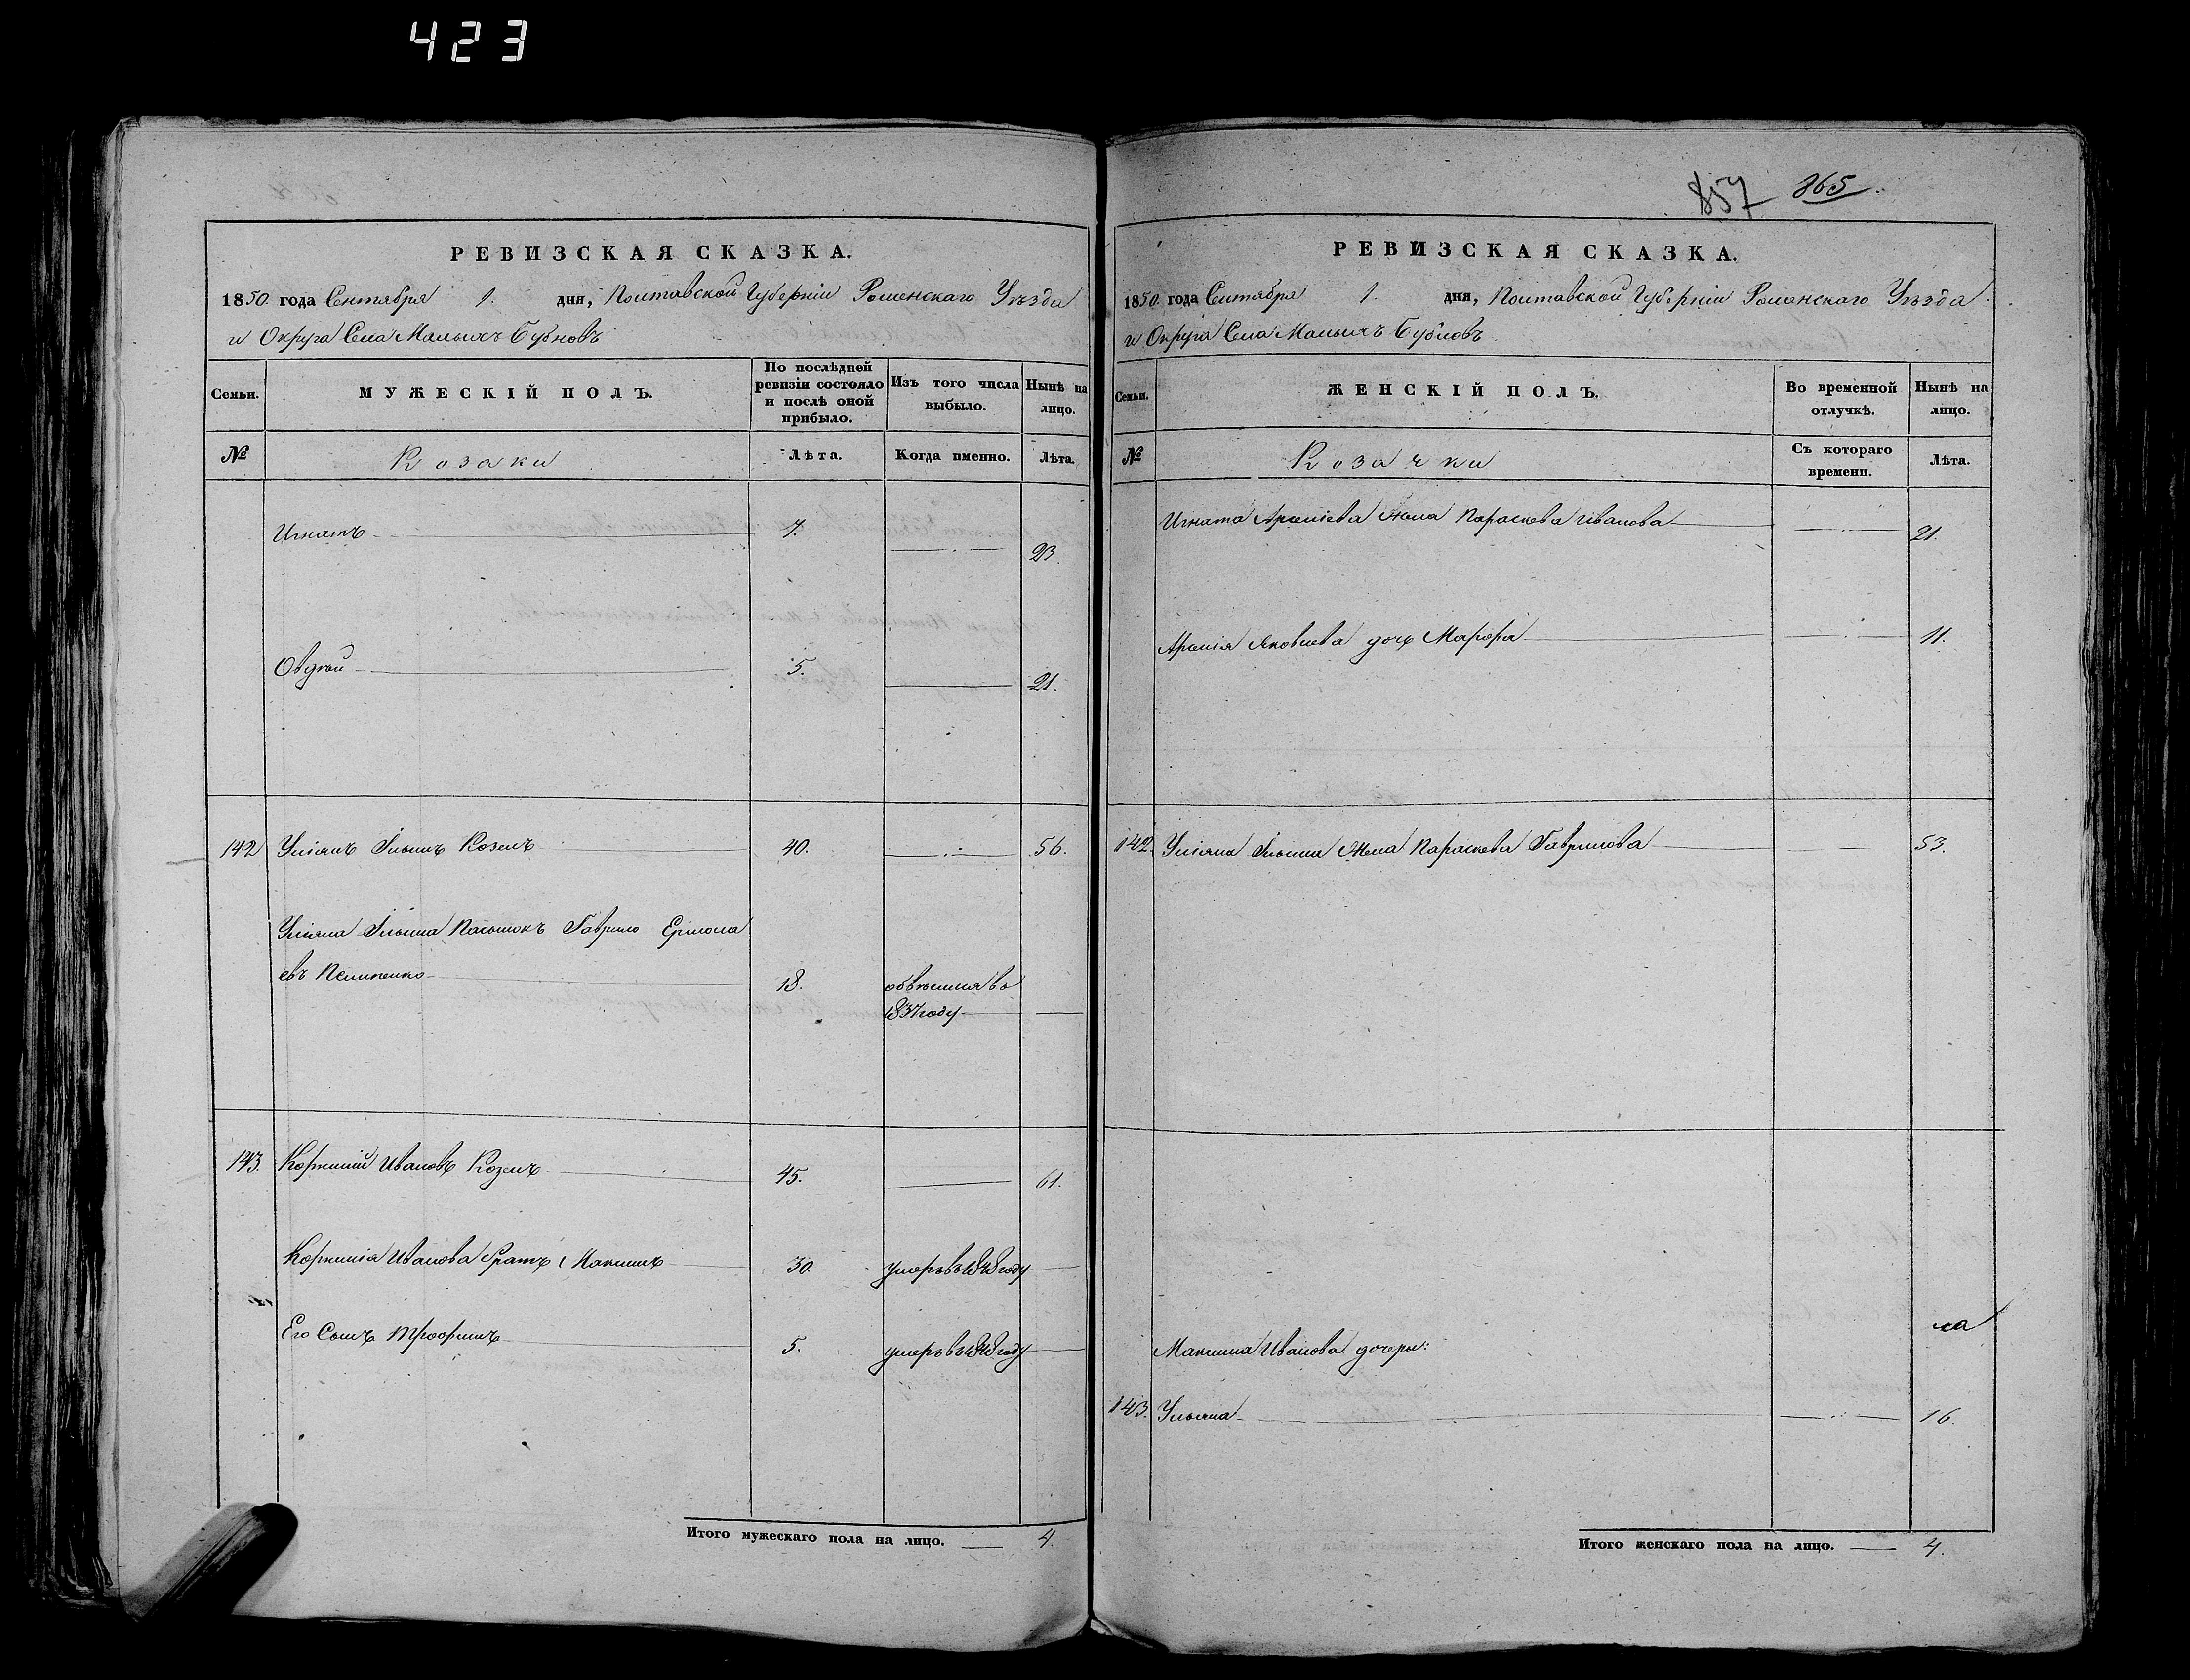 423
РЕВИЗСКАЯ СКАЗКА.
1850. года Сентября 1. дня, Полтавской Губерніи Роменскаго Уѣзда
и Округа Села Малыхъ Бубновъ
Семьи.
МУЖЕСКІЙ ПОЛЪ.
По послѣдней ревизіи состояло и послѣ оной прибыло.
Изъ того числа выбыло.
Нынѣ на лицо.
№
Козаки
Лѣта.
Когда именно.
Лѣта.
Игнатъ 7. 23.
Овдѣй 5. 21.
142 Уліянъ Ильинъ Козелъ 40. 56.
Уліяна Ильина Пасынокъ Гаврило Ермола
евъ Пилипенко 18.
1837 году
143. Корнилій Ивановъ Козелъ 45. 61.
Корнилія Иванова братъ Максимъ 30. умеръ въ 1848 году
Его Сынъ Трофимъ 5. умеръ въ 1848 году
Итого мужескаго пола на лицо. 4.
857 865.
РЕВИЗСКАЯ СКАЗКА.
1850. года Сентября 1. дня, Полтавской Губерніи Роменскаго Уѣзда
и Округа Села Малыхъ Бубновъ
Семьи.
ЖЕНСКІЙ ПОЛЪ.
Во временной отлучкѣ.
Нынѣ на лицо.
№
Козачки
Съ котораго времени.
Лѣта.
Игната Арсніева Жена Параскева Иванова 21.
Арсенія Яковлева дочь Марфа 11.
142. Уліяна Ильина Жена Параскева Гаврилова 53.
Максима Иванова дочеры:
143. Ульяна 16.
Итого женскаго пола на лицо. 4.